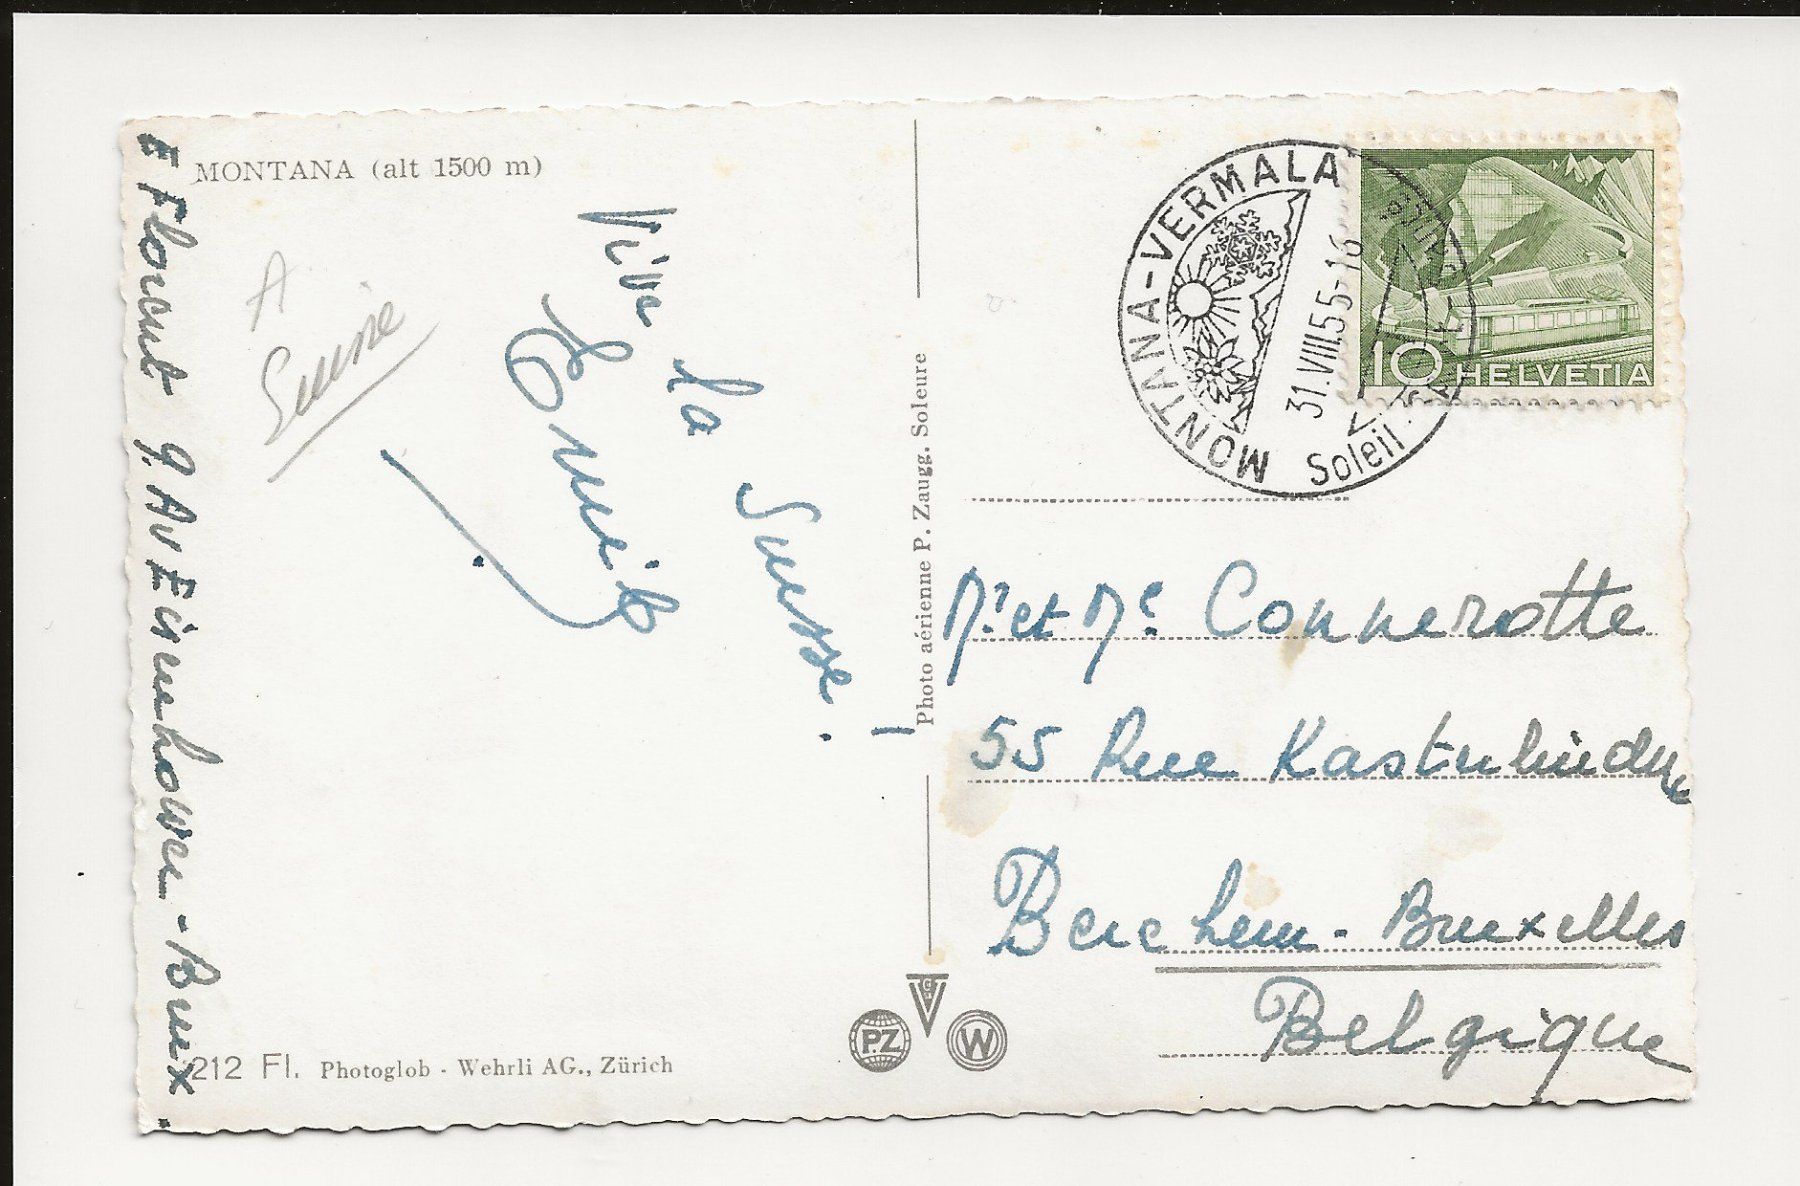 MONTANA (alt 1500 m)
A
Suisse
Vive la Suisse !
Emile
E Florent 9. Av Eisenhower - Brux.
212 Fl. Photoglob - Wehrli AG., Zürich
Photo aérienne P. Zaugg. Soleure
PZ
W
MONTANA-VERMALA
31.VIII.55-16
Soleil
10 HELVETIA
Mr et Me Connerotte
55 Rue Kasterlinden
Berchem - Bruxelles
Belgique